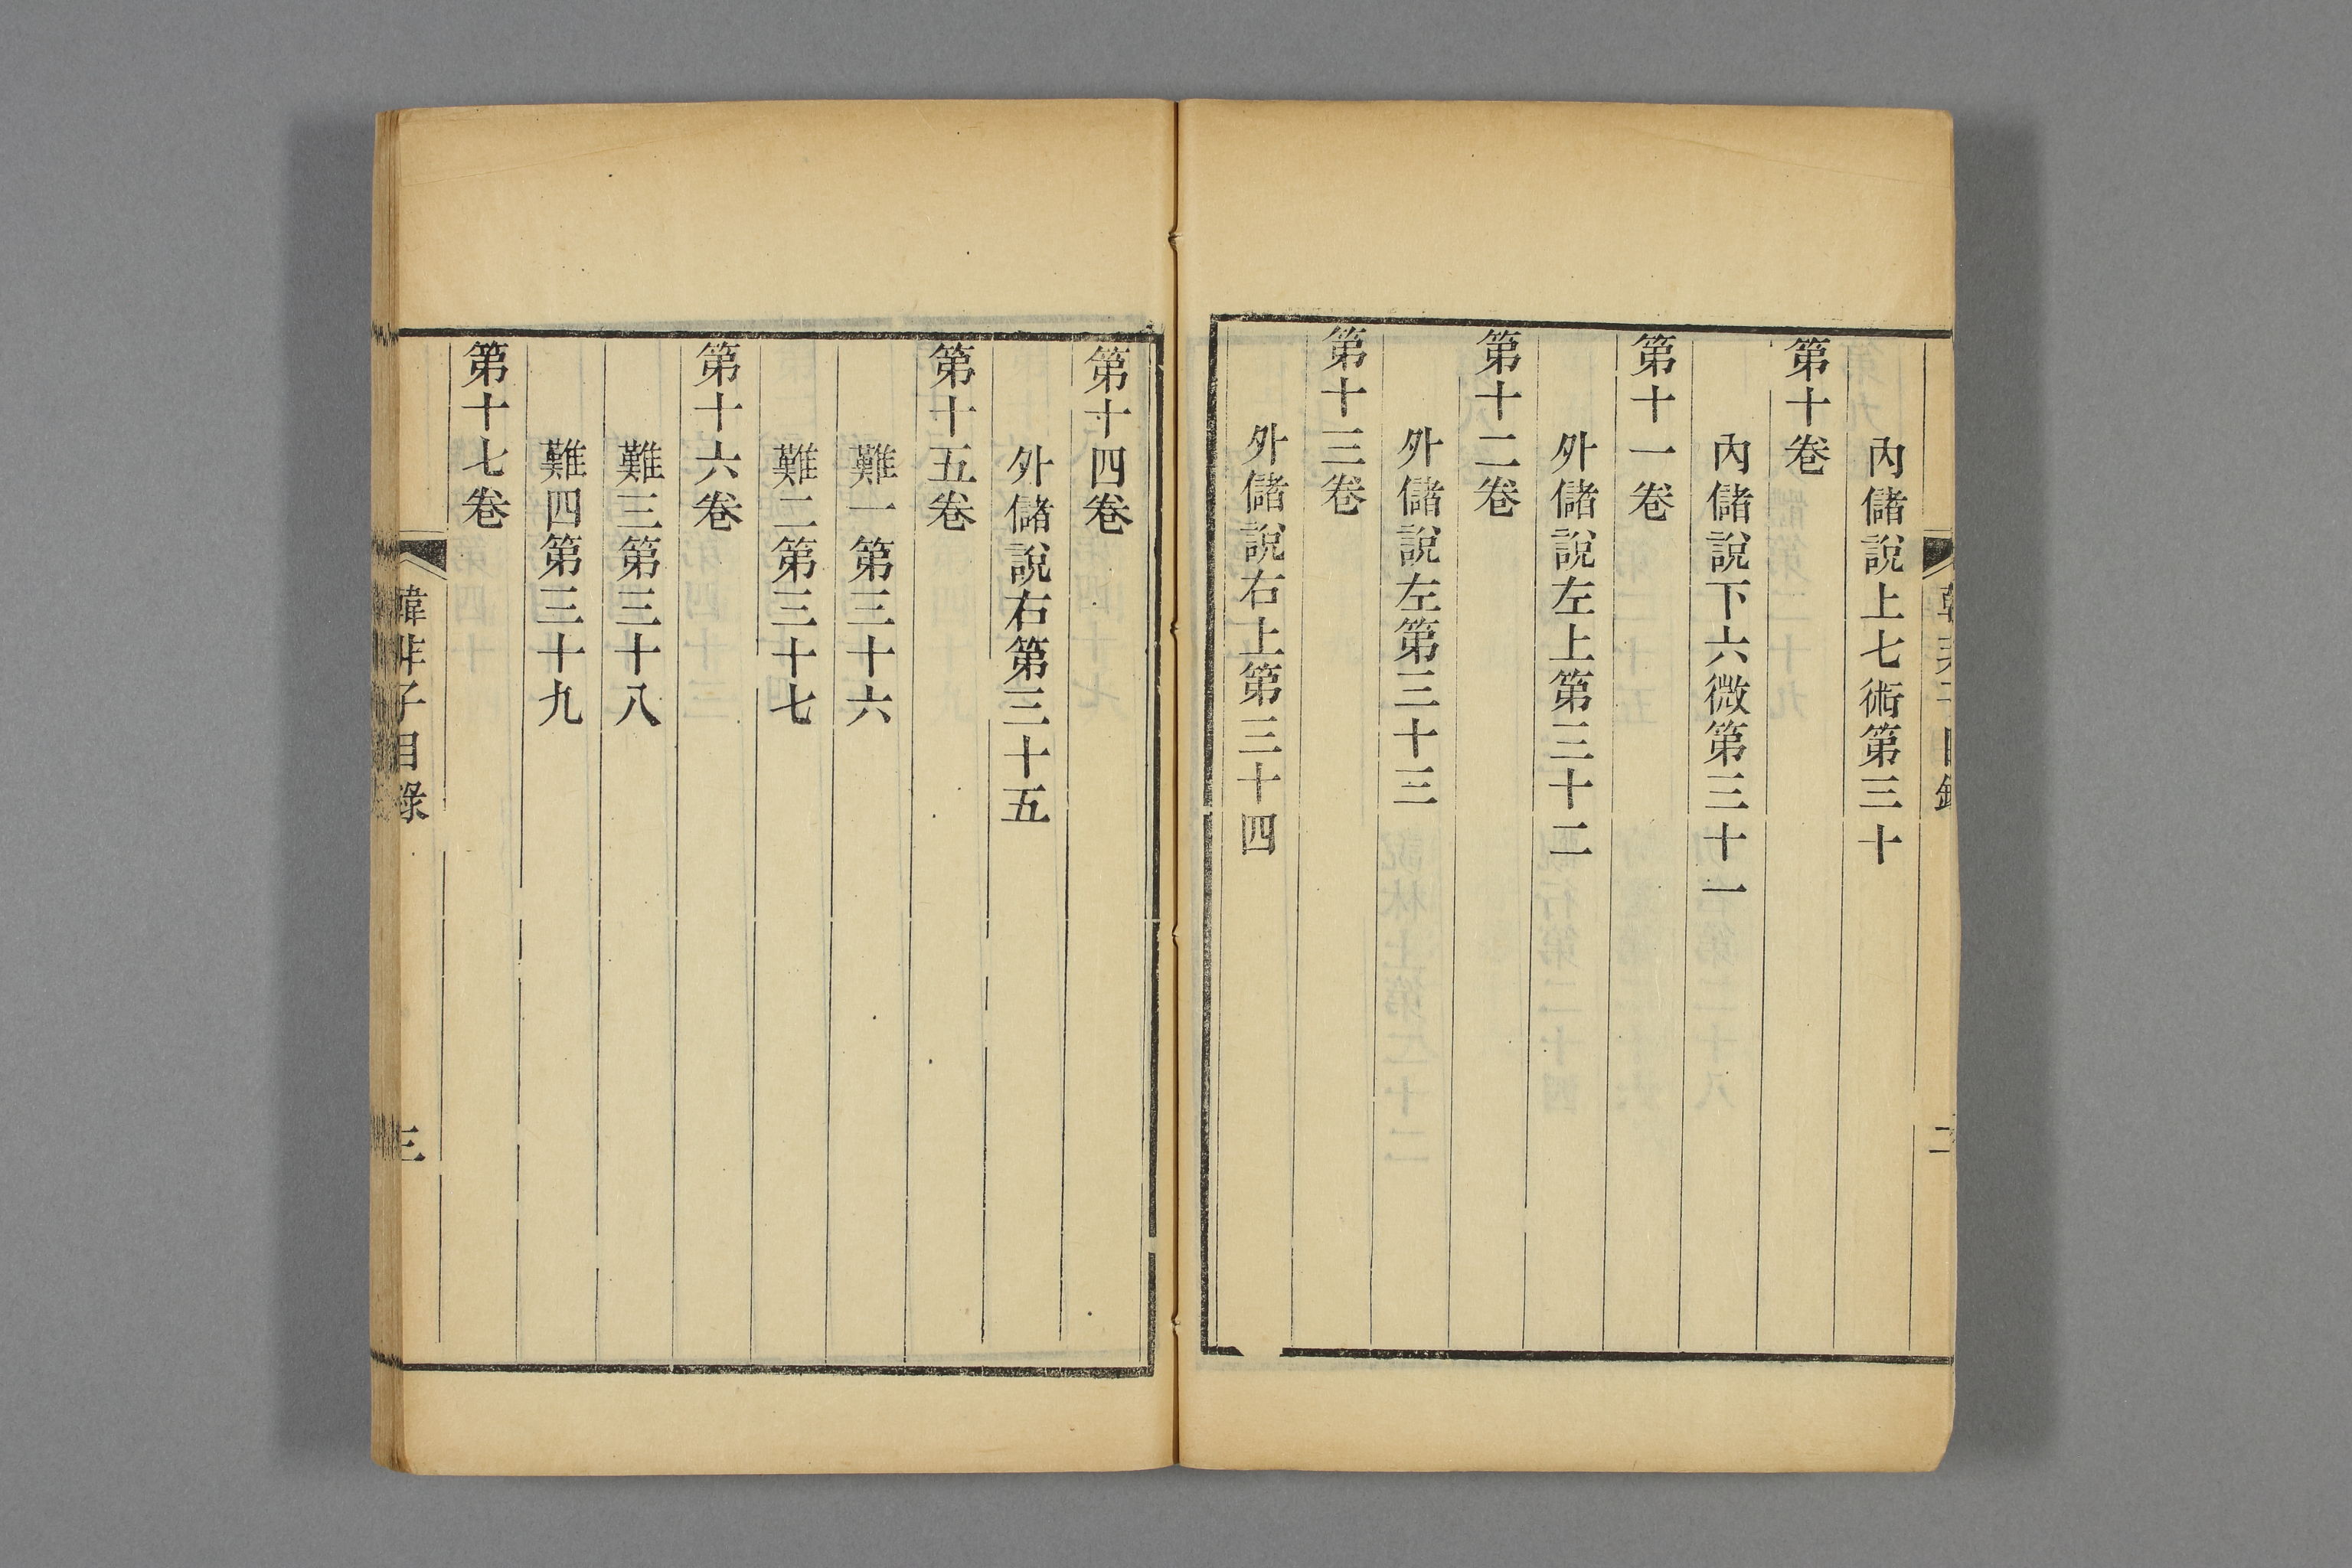 內儲說上七術第三十
第十卷
內儲說下六微第三十一
第十一卷
外儲說左上第三十二
第十二卷
外儲說左第三十三
第十三卷
外儲說右上第三十四
第十四卷
外儲說右第三十五
第十五卷
難一第三十六
難二第三十七
第十六卷
難三第三十八
難四第三十九
第十七卷
韓非子目錄
三